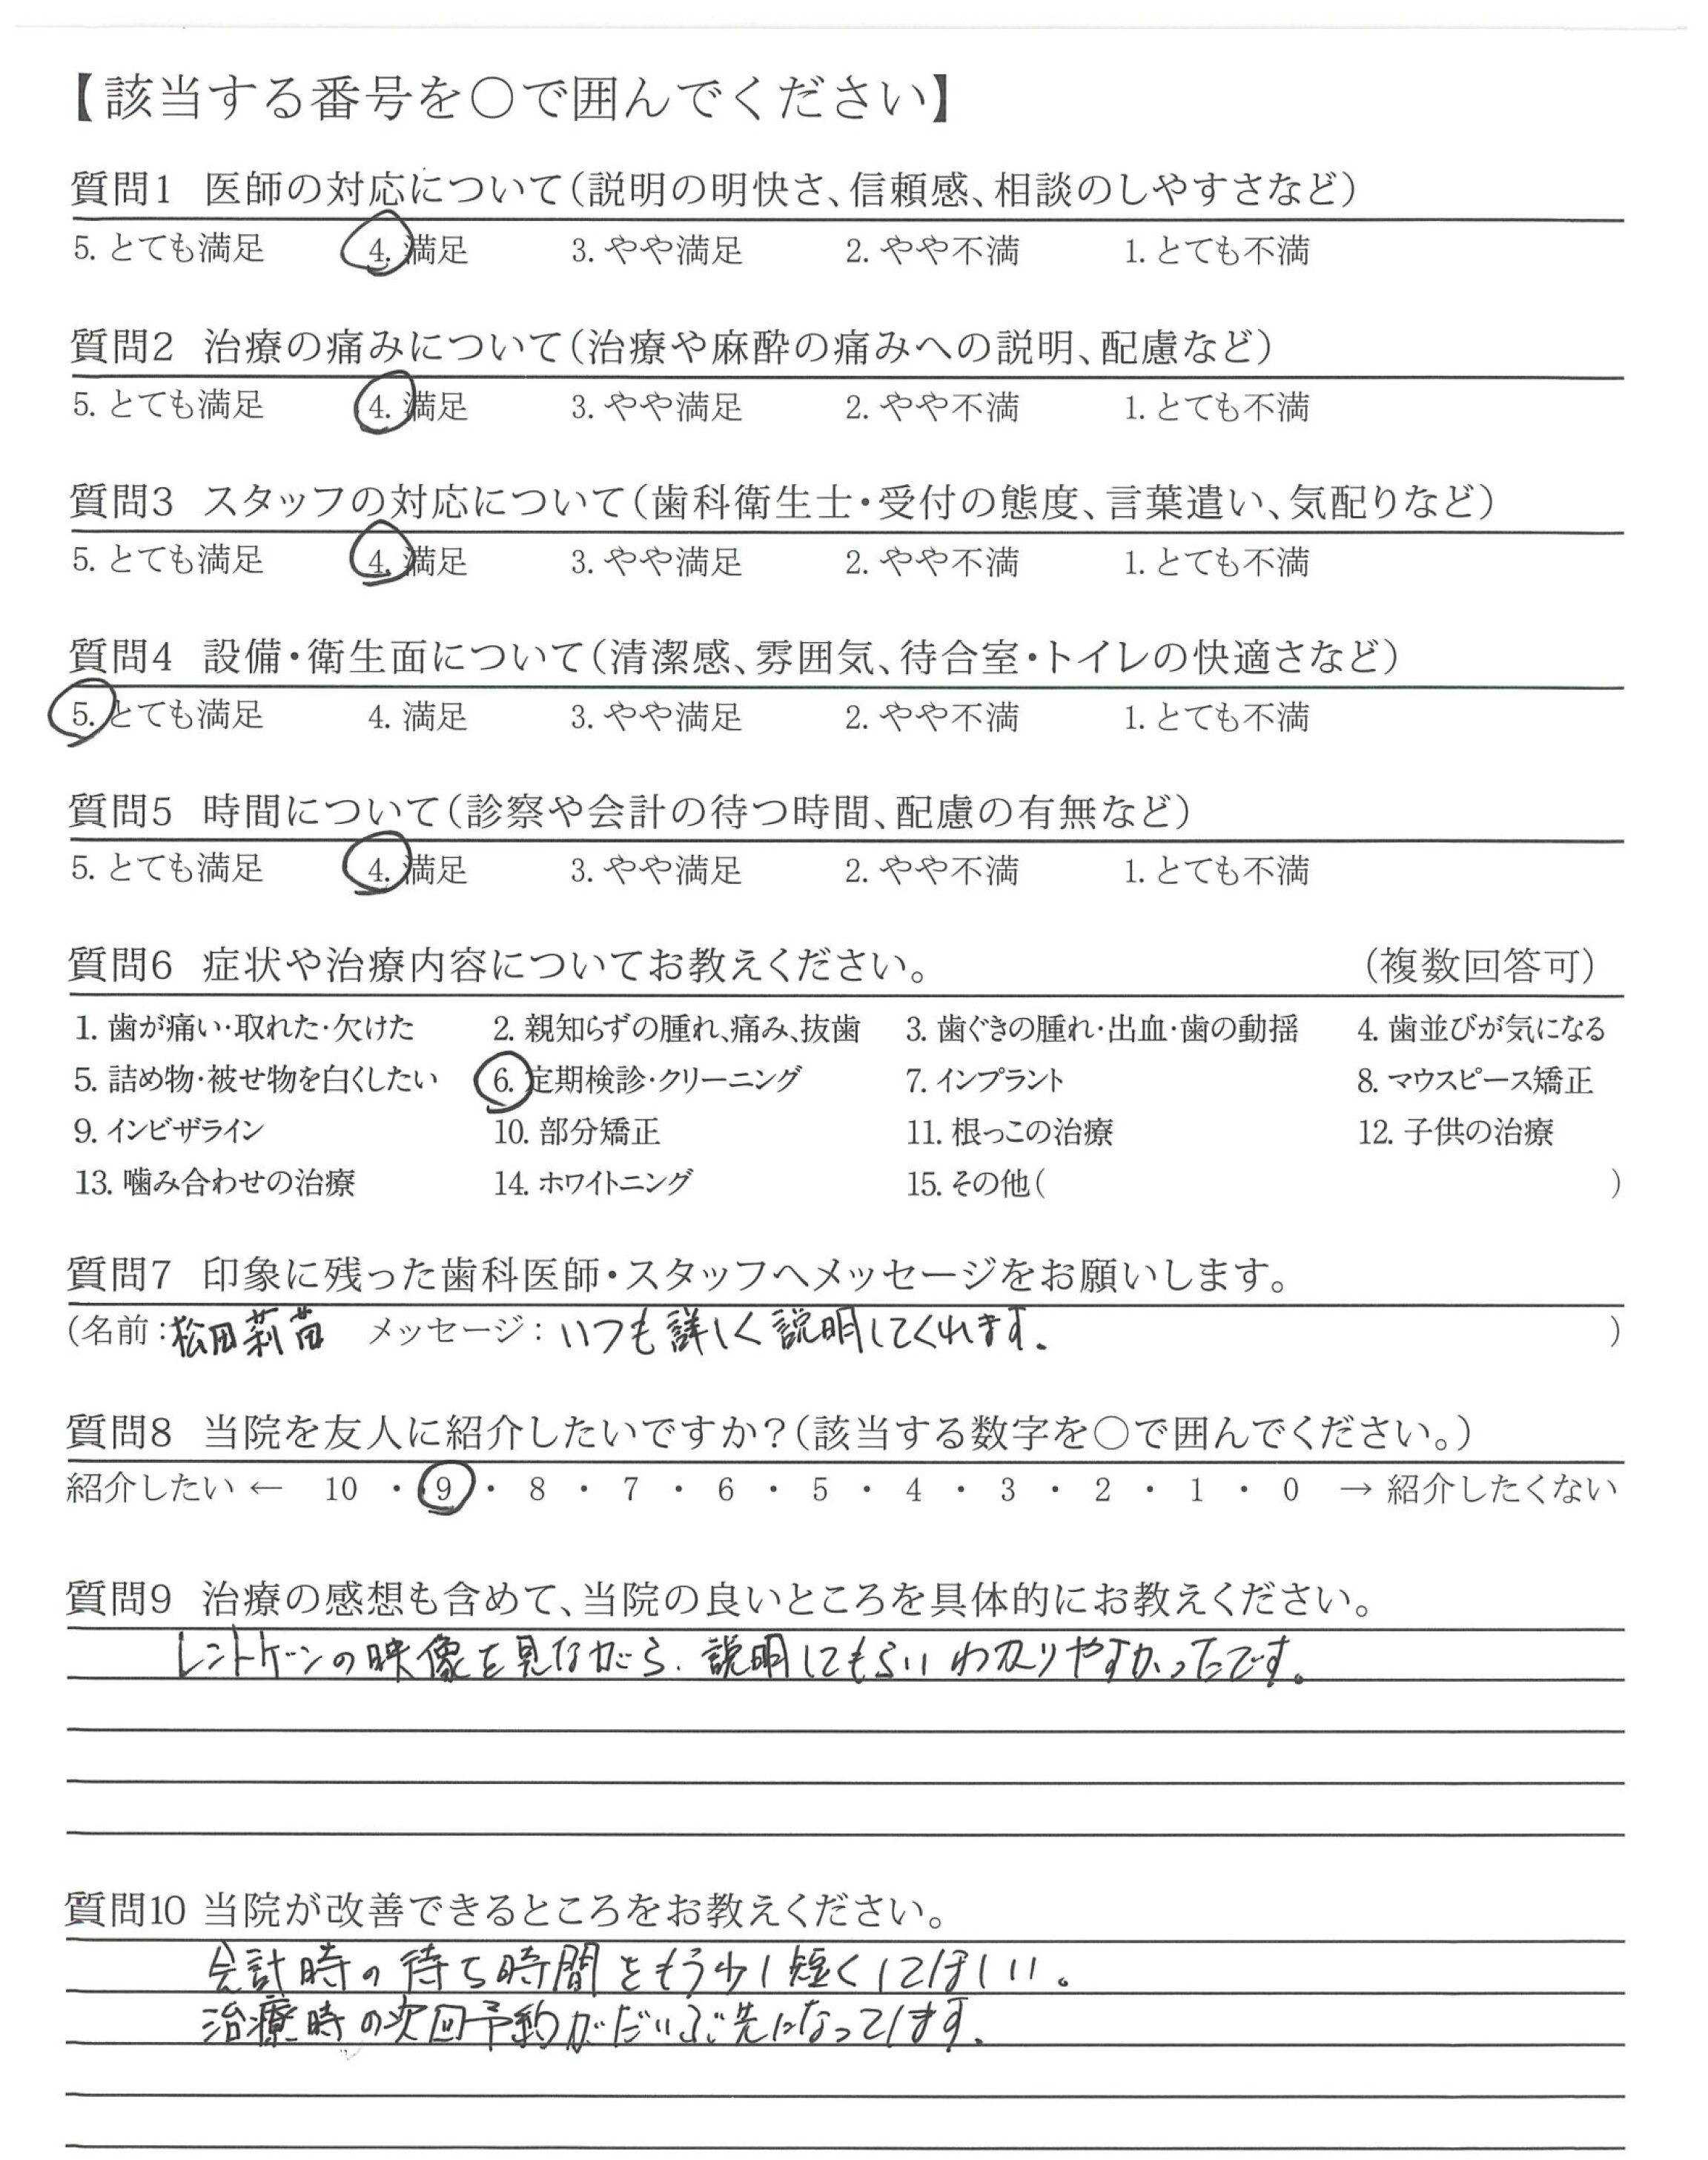 【該当する番号を○で囲んでください】
質問1 医師の対応について(説明の明快さ、信頼感、相談のしやすさなど)
5. とても満足 4. 満足 3. やや満足 2. やや不満 1. とても不満
質問2 治療の痛みについて(治療や麻酔の痛みへの説明、配慮など)
5. とても満足 4. 満足 3. やや満足 2. やや不満 1. とても不満
質問3 スタッフの対応について(歯科衛生士・受付の態度、言葉遣い、気配りなど)
5. とても満足 4. 満足 3. やや満足 2. やや不満 1. とても不満
質問4 設備・衛生面について(清潔感、雰囲気、待合室・トイレの快適さなど)
5. とても満足 4. 満足 3. やや満足 2. やや不満 1. とても不満
質問5 時間について(診察や会計の待つ時間、配慮の有無など)
5. とても満足 4. 満足 3. やや満足 2. やや不満 1. とても不満
質問6 症状や治療内容についてお教えください。 (複数回答可)
1. 歯が痛い・取れた・欠けた 2. 親知らずの腫れ、痛み、抜歯 3. 歯ぐきの腫れ・出血・歯の動揺 4. 歯並びが気になる
5. 詰め物・被せ物を白くしたい 6. 定期検診・クリーニング 7. インプラント 8. マウスピース矯正
9. インビザライン 10. 部分矯正 11. 根っこの治療 12. 子供の治療
13. 噛み合わせの治療 14. ホワイトニング 15. その他( )
質問7 印象に残った歯科医師・スタッフへメッセージをお願いします。
(名前:松田莉苗 メッセージ:いつも詳しく説明してくれます. )
質問8 当院を友人に紹介したいですか?(該当する数字を○で囲んでください。)
紹介したい ← 10 ・ 9 ・ 8 ・ 7 ・ 6 ・ 5 ・ 4 ・ 3 ・ 2 ・ 1 ・ 0 → 紹介したくない
質問9 治療の感想も含めて、当院の良いところを具体的にお教えください。
レントゲンの映像を見ながら、説明してもらいわかりやすかったです。
質問10 当院が改善できるところをお教えください。
会計時の待ち時間をもう少し短くしてほしい。
治療時の次回予約がだいぶ先になってします.